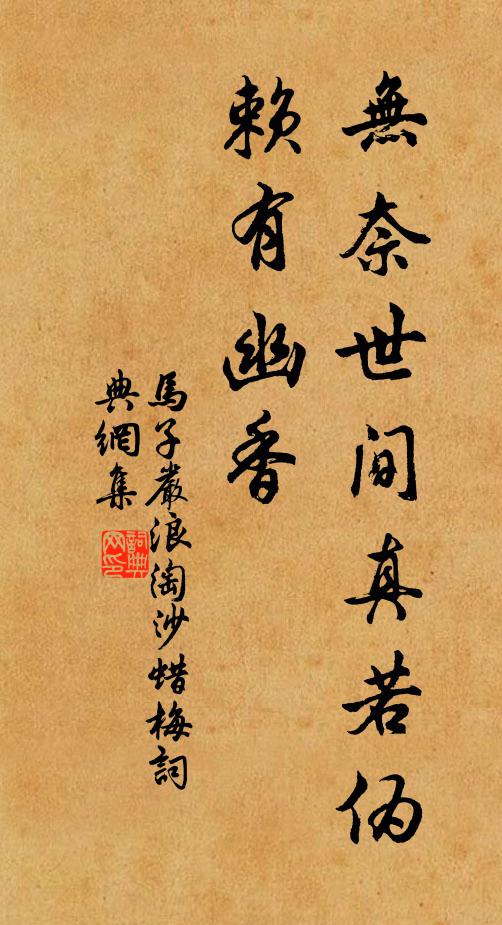 無奈世间真若伪
賴有幽香
馬子嚴浪淘沙蜡梅詞
典網集
詞典
网印